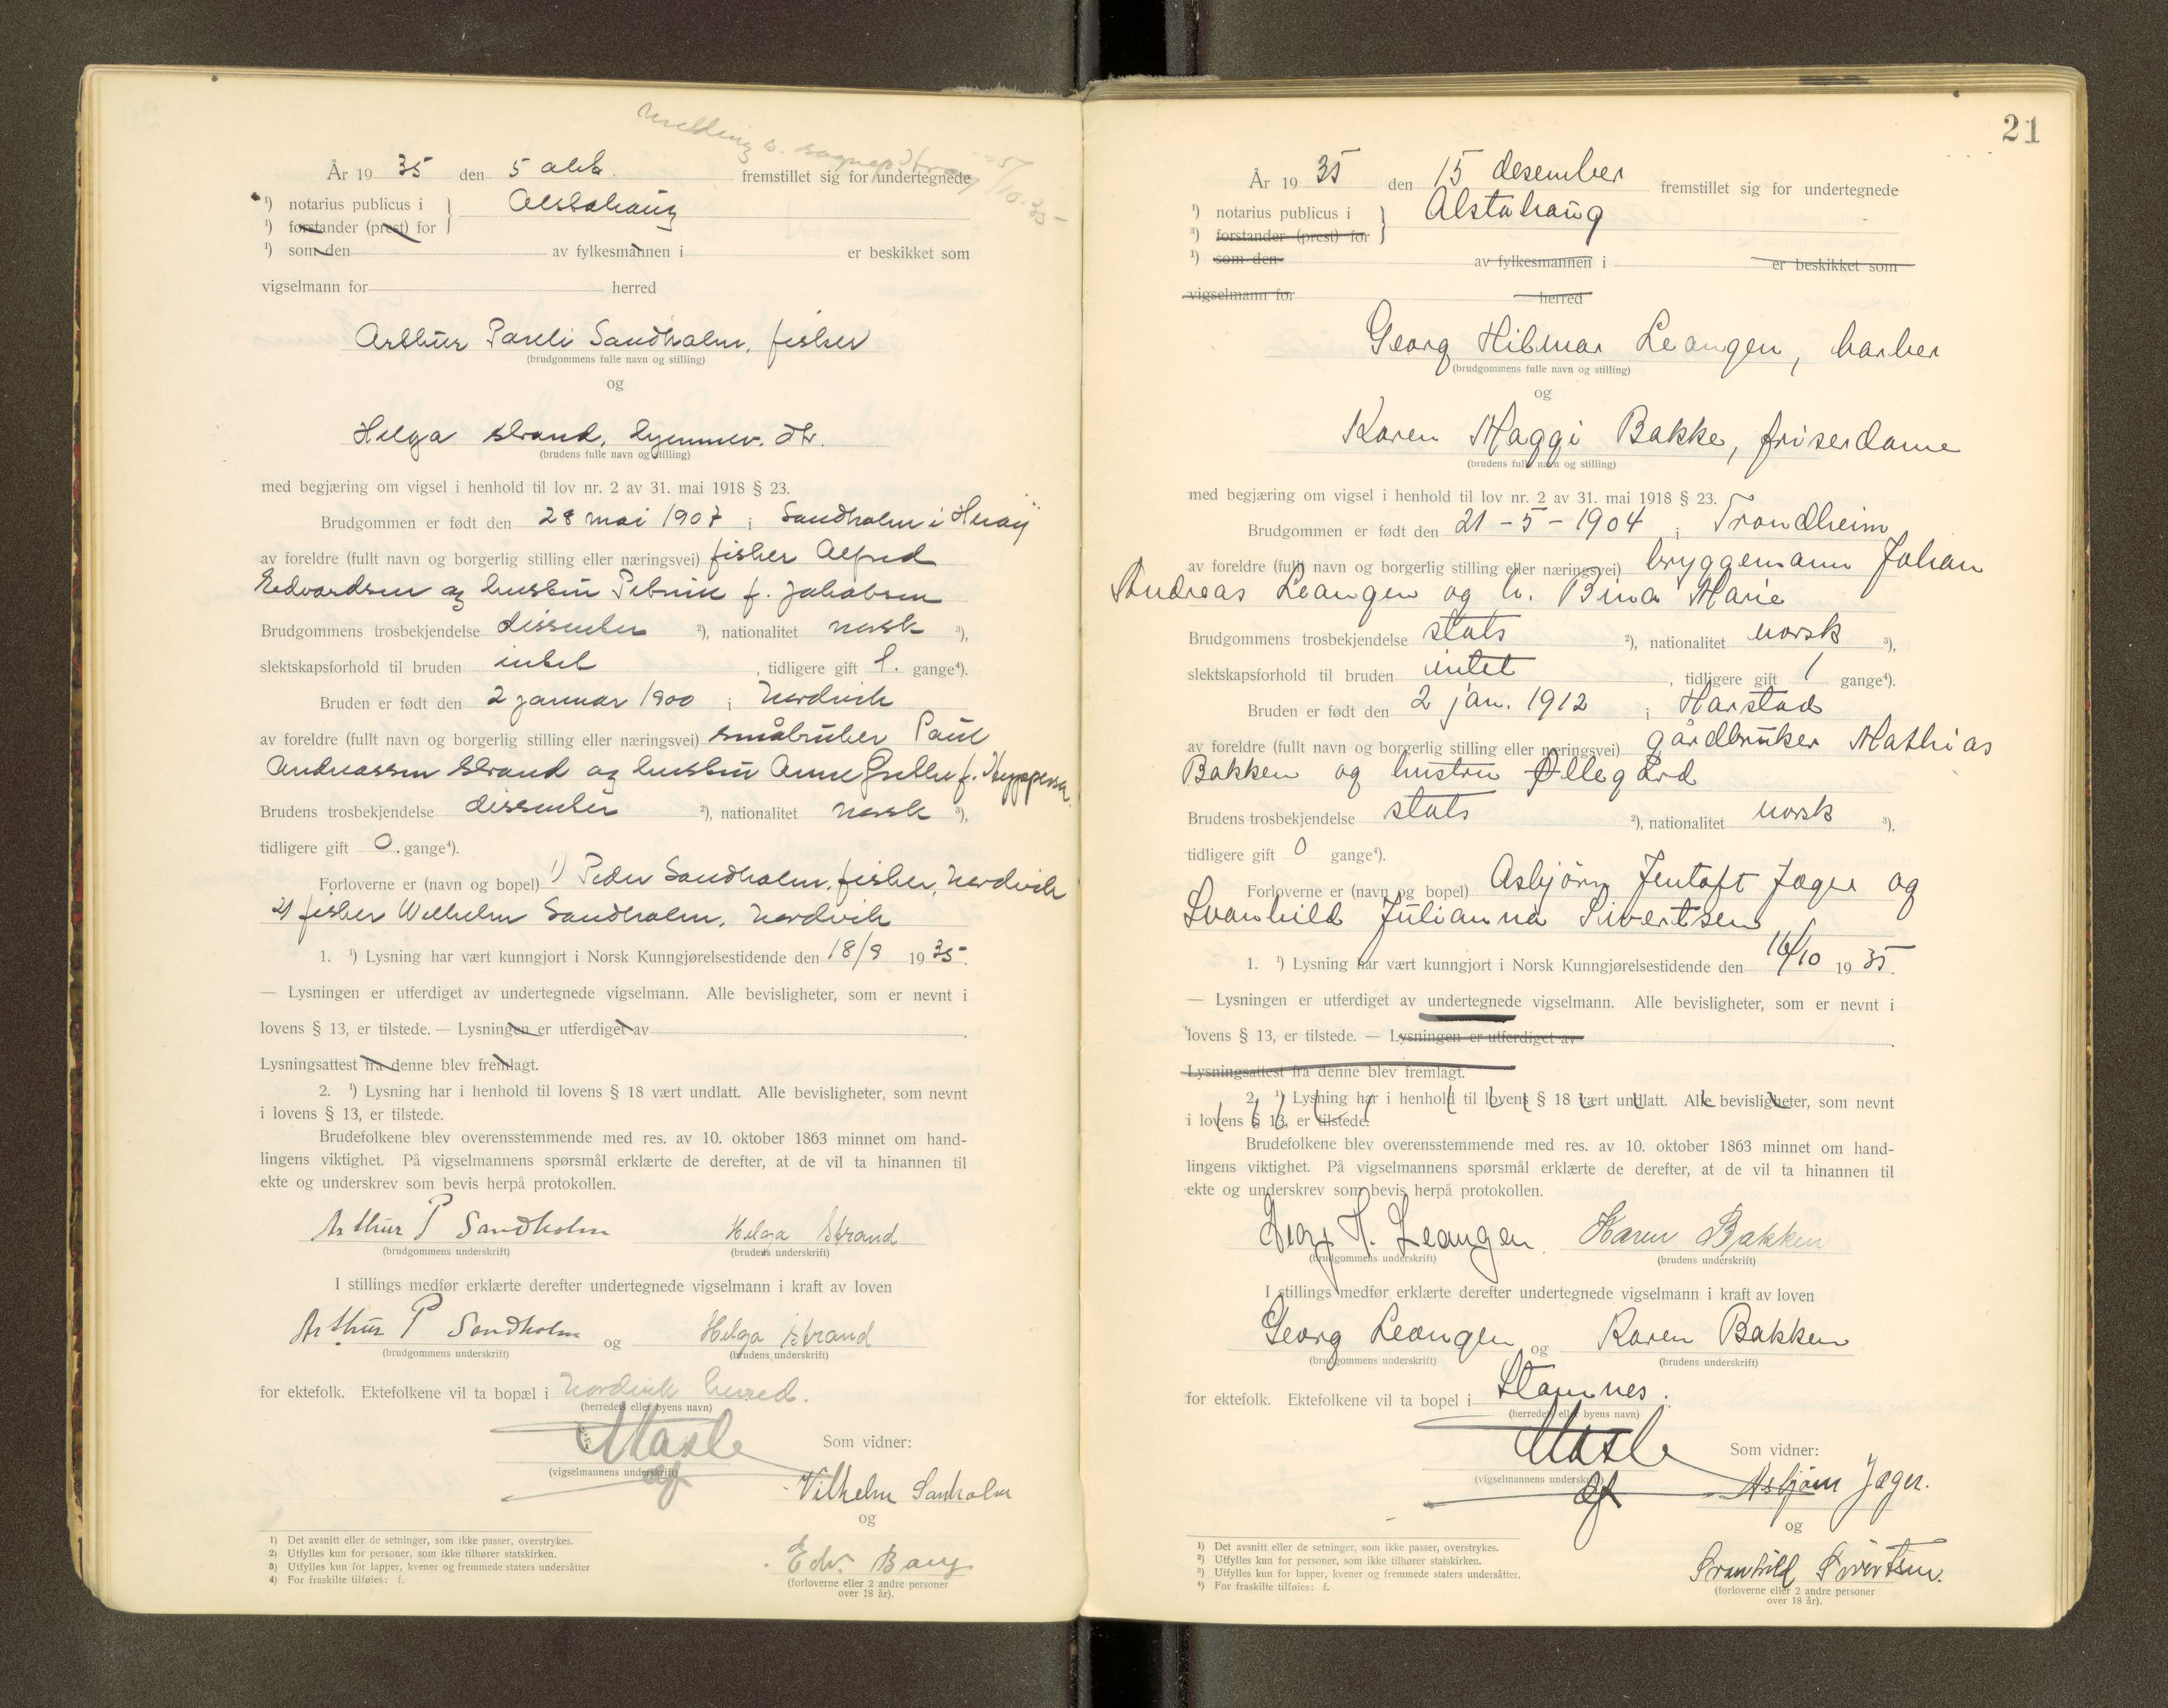 År 19 35 den 5 okt. fremstillet sig for undertegnede
¹) notarius publicus i Alstahaug
¹) forstander (prest) for
¹) som den av fylkesmannen i er beskikket som
vigselmann for herred
Arthur Pareli Sandholm, fisker
(brudgommens fulle navn og stilling)
og
Helga Strand, hjemmev. dtr.
(brudens fulle navn og stilling)
med begjæring om vigsel i henhold til lov nr. 2 av 31. mai 1918 § 23.
Brudgommen er født den 28 mai 1907 i Sandholm i Herøy
av foreldre (fullt navn og borgerlig stilling eller næringsvei) fisker Alfred
Edvardsen og hustru Petrine f. Jakobsen
Brudgommens trosbekjendelse dissenter ²), nationalitet norsk ³),
slektskapsforhold til bruden intet, tidligere gift 1. gange⁴).
Bruden er født den 2 januar 1900 i Nordvik
av foreldre (fullt navn og borgerlig stilling eller næringsvei) småbruker Paul
Andreassen Strand og hustru Anne f.
Brudens trosbekjendelse dissenter ²), nationalitet norsk ³),
tidligere gift 0. gange⁴).
Forloverne er (navn og bopel) 1) Peder Sandholm, fisker, Nordvik
2) fisker Wilhelm Sandholm, Nordvik
1. ¹) Lysning har vært kunngjort i Norsk Kunngjørelsestidende den 18/9 1935.
— Lysningen er utferdiget av undertegnede vigselmann. Alle bevisligheter, som er nevnt i
lovens § 13, er tilstede. — Lysningen er utferdiget av
Lysningsattest fra denne blev fremlagt.
2. ¹) Lysning har i henhold til lovens § 18 vært undlatt. Alle bevisligheter, som nevnt
i lovens § 13, er tilstede.
Brudefolkene blev overensstemmende med res. av 10. oktober 1863 minnet om hand-
lingens viktighet. På vigselmannens spørsmål erklærte de derefter, at de vil ta hinannen til
ekte og underskrev som bevis herpå protokollen.
Arthur P Sandholm Helga Strand
(brudgommens underskrift) (brudens underskrift)
I stillings medfør erklærte derefter undertegnede vigselmann i kraft av loven
Arthur P Sandholm og Helga Strand
(brudgommens underskrift) (brudens underskrift)
for ektefolk. Ektefolkene vil ta bopæl i Nordvik herred.
(herredets eller byens navn)
Som vidner:
(vigselmannens underskrift)
Vilhelm Sanholm
og
Edv. Bang
(forloverne eller 2 andre personer
over 18 år).
1) Det avsnitt eller de setninger, som ikke passer, overstrykes.
2) Utfylles kun for personer, som ikke tilhører statskirken.
3) Utfylles kun for lapper, kvener og fremmede staters undersåtter
4) For fraskilte tilføies: f.
21
År 19 35 den 15 desember fremstillet sig for undertegnede
¹) notarius publicus i Alstahaug
¹) forstander (prest) for
¹) som den av fylkesmannen i er beskikket som
vigselmann for herred
Georg Hilmar Leangen, barber
(brudgommens fulle navn og stilling)
og
Karen Maggi Bakke, friserdame
(brudens fulle navn og stilling)
med begjæring om vigsel i henhold til lov nr. 2 av 31. mai 1918 § 23.
Brudgommen er født den 21-5-1904 i Trondheim
av foreldre (fullt navn og borgerlig stilling eller næringsvei) bryggemann Johan
Andreas Leangen og h. Bina Marie
Brudgommens trosbekjendelse stats ²), nationalitet norsk ³),
slektskapsforhold til bruden intet, tidligere gift 1 gange⁴).
Bruden er født den 2 jan. 1912 i Harstad
av foreldre (fullt navn og borgerlig stilling eller næringsvei) gårdbruker Mathias
Bakken og hustru Øllegård
Brudens trosbekjendelse stats ²), nationalitet norsk ³),
tidligere gift 0 gange⁴).
Forloverne er (navn og bopel) Asbjørn Jentoft Jæger og
Svanhild Julianna Sivertsen
1. ¹) Lysning har vært kunngjort i Norsk Kunngjørelsestidende den 16/10 1935.
— Lysningen er utferdiget av undertegnede vigselmann. Alle bevisligheter, som er nevnt i
lovens § 13, er tilstede. — Lysningen er utferdiget av
Lysningsattest fra denne blev fremlagt.
2. ¹) Lysning har i henhold til lovens § 18 vært undlatt. Alle bevisligheter, som nevnt
i lovens § 13, er tilstede.
Brudefolkene blev overensstemmende med res. av 10. oktober 1863 minnet om hand-
lingens viktighet. På vigselmannens spørsmål erklærte de derefter, at de vil ta hinannen til
ekte og underskrev som bevis herpå protokollen.
Georg H. Leangen. Karen Bakken
(brudgommens underskrift) (brudens underskrift)
I stillings medfør erklærte derefter undertegnede vigselmann i kraft av loven
Georg Leangen og Karen Bakken
(brudgommens underskrift) (brudens underskrift)
for ektefolk. Ektefolkene vil ta bopel i Stamnes.
(herredets eller byens navn)
Som vidner:
(vigselmannens underskrift)
Asbjørn Jæger.
og
Svanhild Sivertsen.
(forloverne eller 2 andre personer
over 18 år).
1) Det avsnitt eller de setninger, som ikke passer, overstrykes.
2) Utfylles kun for personer, som ikke tilhører statskirken.
3) Utfylles kun for lapper, kvener og fremmede staters undersåtter.
4) For fraskilte tilføies: f.